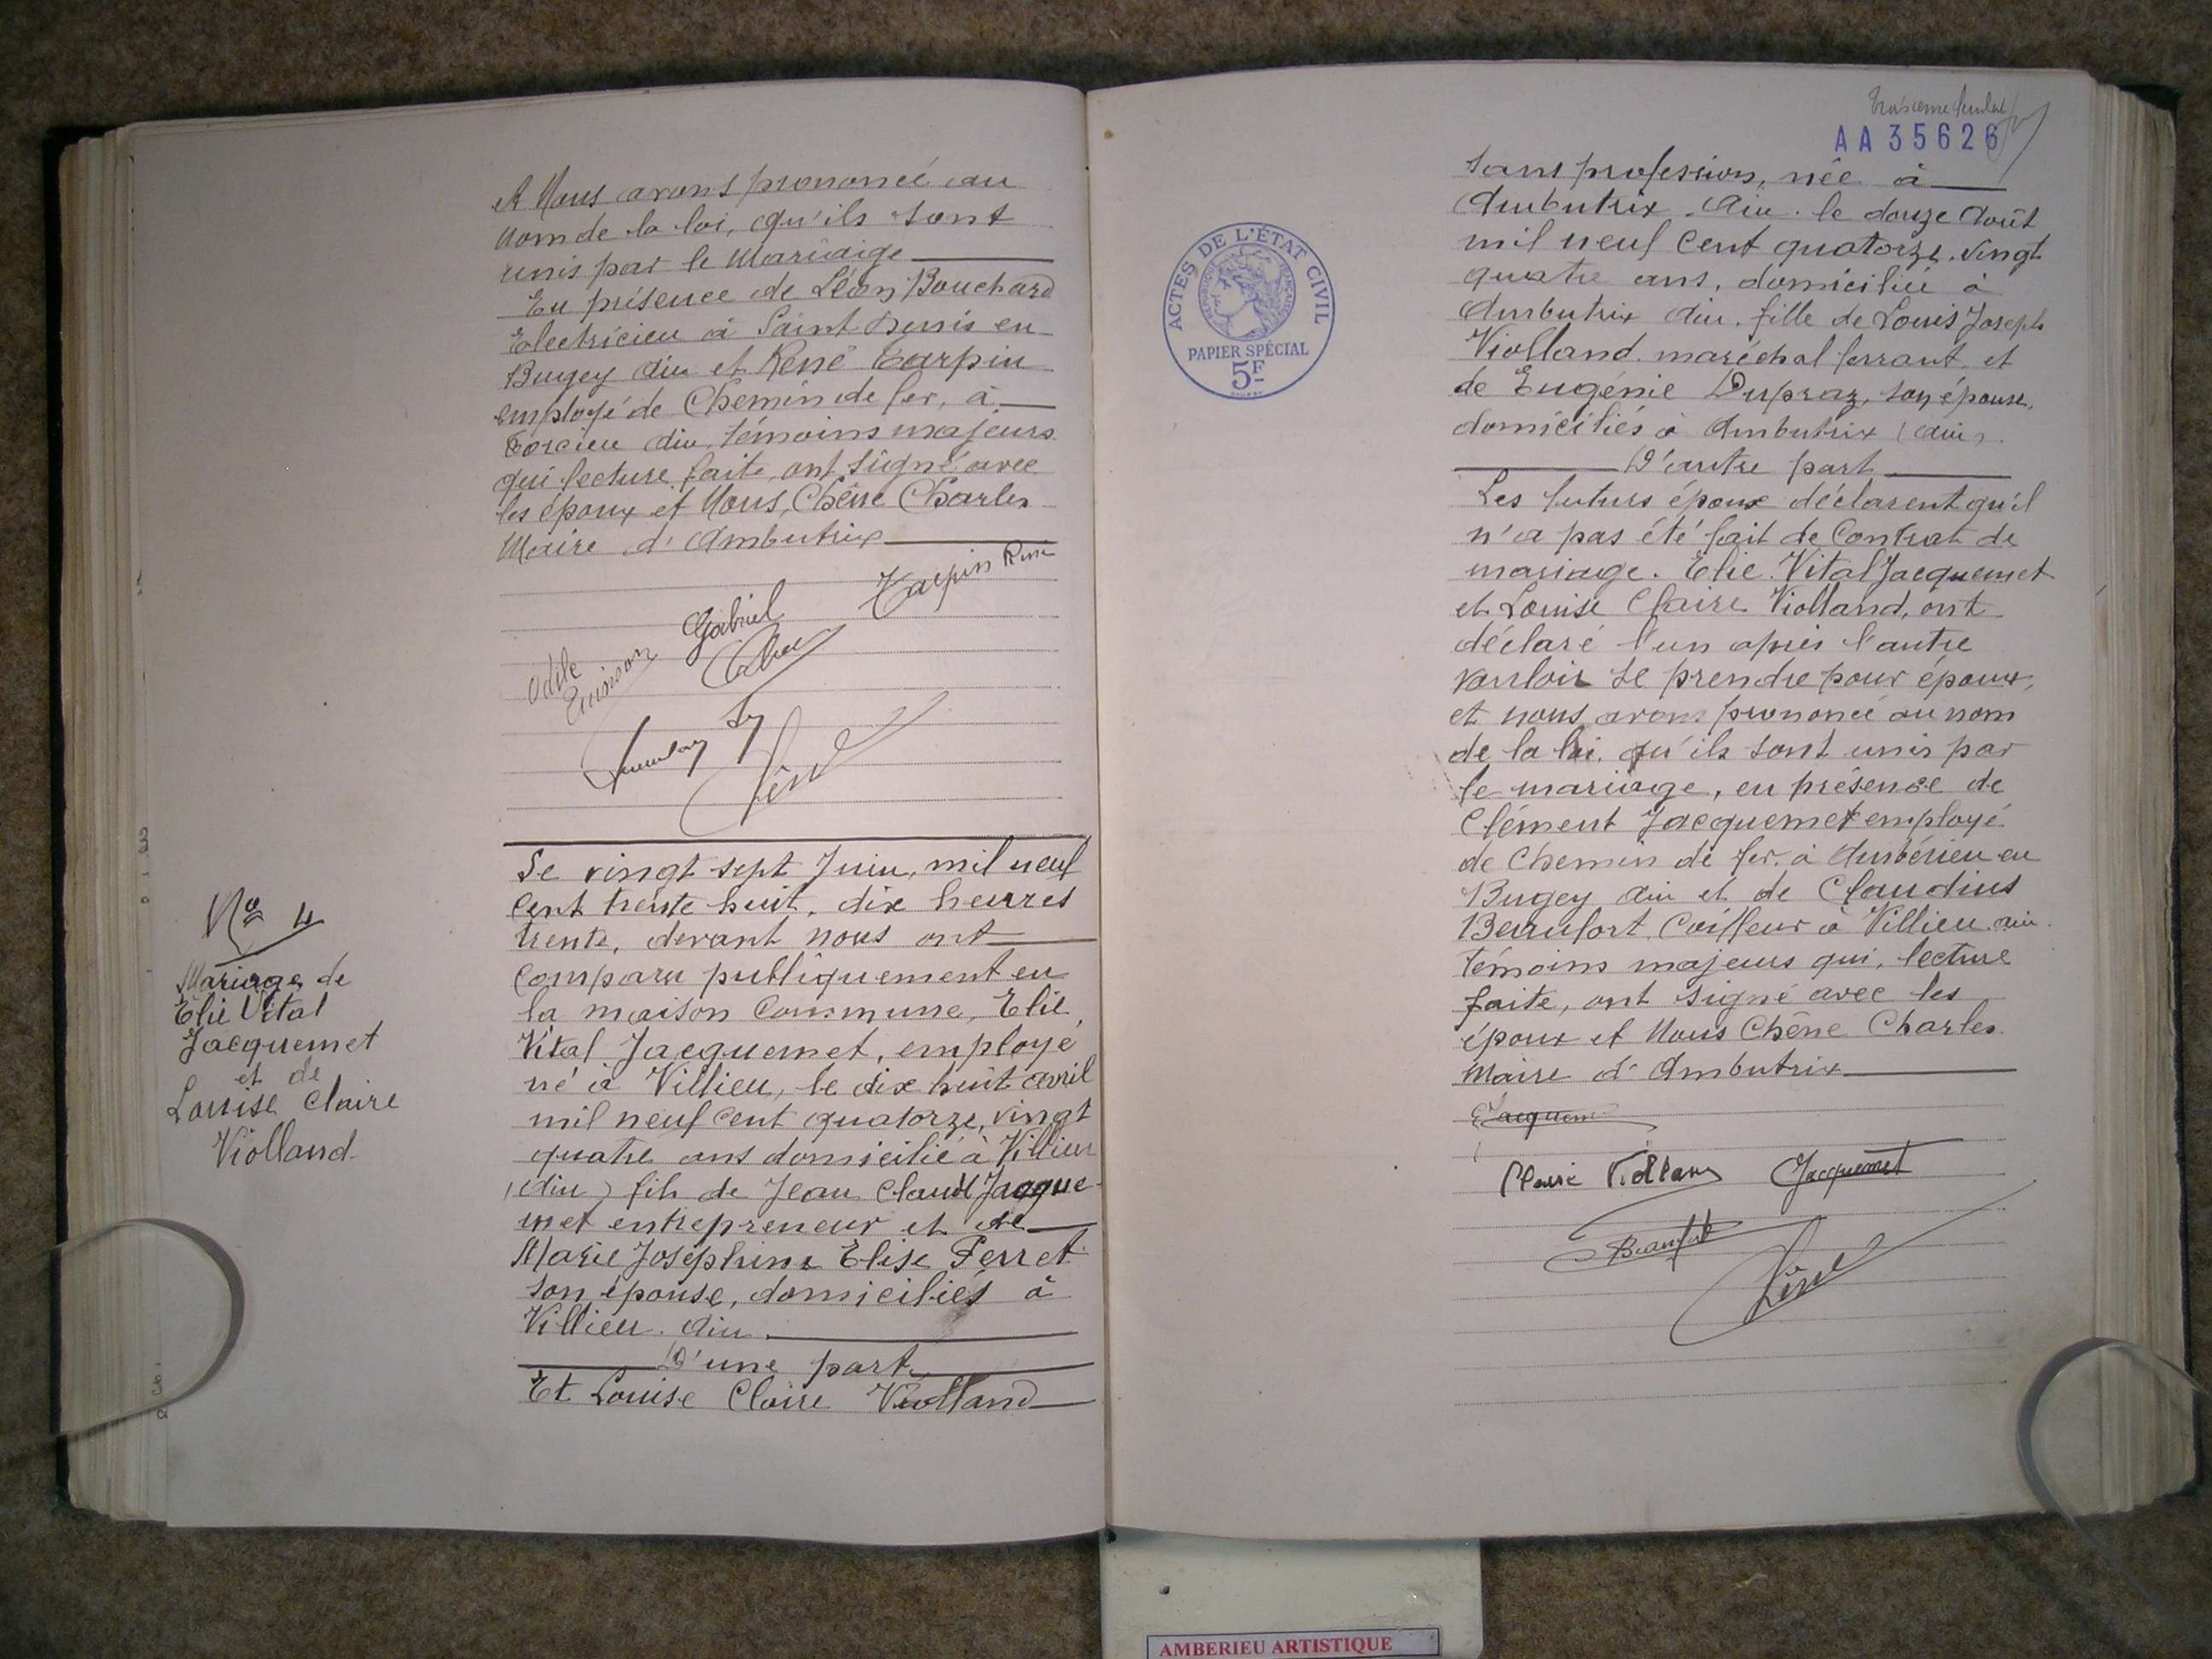 et Nous avons prononcé au
Nom de la loi, qu'ils sont
unis par le Mariaige
En présence de Léon Bouchard
Electricien à Saint Denis en
Bugey Ain et René Tarpin
employé de Chemin de fer, à
Torcieu Ain, témoins majeurs
qui lecture faite, ont signé avec
les époux et Nous, Chêne Charles
Maire d'Ambutrix
Tarpin René
Gabriel
Odile
Chêne
Le vingt sept Juin, mil neuf
Cent trente huit, dix heures
trente, devant nous ont
Comparu publiquement en
la maison Commune, Elie,
Vital Jacquemet, employé
né à Villieu, le dix huit avril
mil neuf Cent quatorze, vingt
quatre ans domicilié à Villieu
(Ain) fils de Jean Claude Jacque-
met entrepreneur et de
Marie Joséphine Elise Ferret
son épouse, domiciliés à
Villieu. Ain.
D'une part
Et Louise Claire Violland
No 4
Mariage de
Elie Vital
Jacquemet
et de
Louise Claire
Violland
AA35626
sans profession, née à
Ambutrix. Ain. le douze Août
mil neuf Cent quatorze. vingt
quatre ans, domiciliée à
Ambutrix Ain. fille de Louis Joseph
Violland. maréchal ferrant. et
de Eugénie Dupraz, son épouse,
domiciliés à Ambutrix (Ain).
D'autre part
Les futurs époux déclarent qu'il
n'a pas été fait de Contrat de
mariage. Elie. Vital Jacquemet
et Louise Claire Violland, ont
déclaré l'un après l'autre
vouloir se prendre pour époux,
et nous avons prononcé au nom
de la loi, qu'ils sont unis par
le mariage, en présence de
Clément Jacquemet employé
de Chemin de fer. à Ambérieu en
Bugey Ain et de Claudius
Beaufort. Coiffeur à Villieu. Ain.
témoins majeurs qui, lecture
faite, ont signé avec les
époux et Nous Chêne Charles.
Maire d'Ambutrix
Claire Violland Jacquemet
Beaufort
Chêne
ACTES DE L'ÉTAT CIVIL
PAPIER SPÉCIAL
5F
AMBERIEU ARTISTIQUE